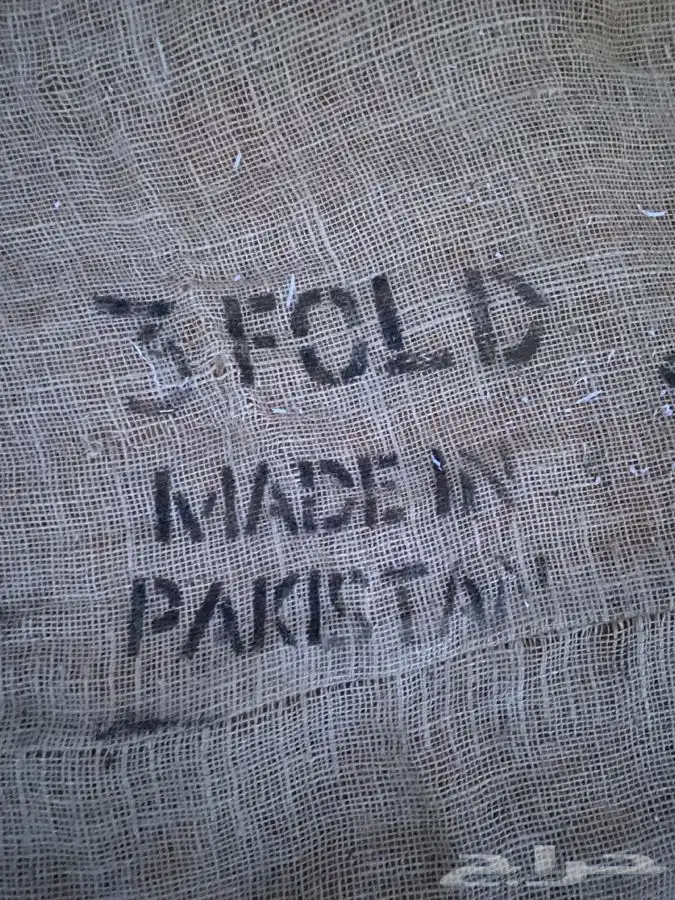 3 FOLD
MADE IN
PAKISTAN
حراج